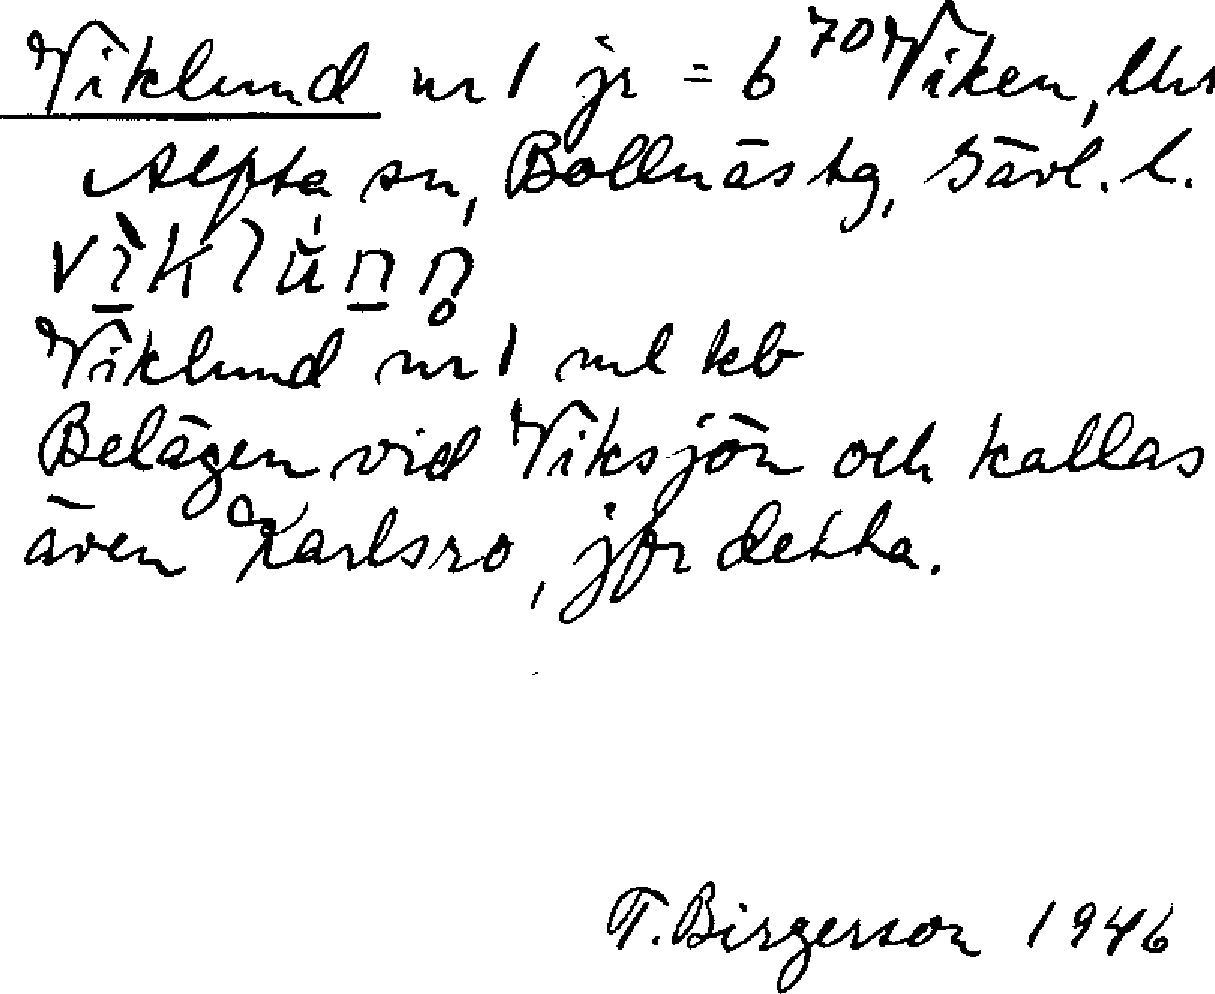 Viklund nr 1 jr = 6⁷⁰ Viken, lht
Alfta sn, Bollnäs tg, Gävl. l.
Viklund nr 1 ml kb
Belägen vid Viksjön och kallas
även Karlsro, jfr detta.
T. Birgerson 1946